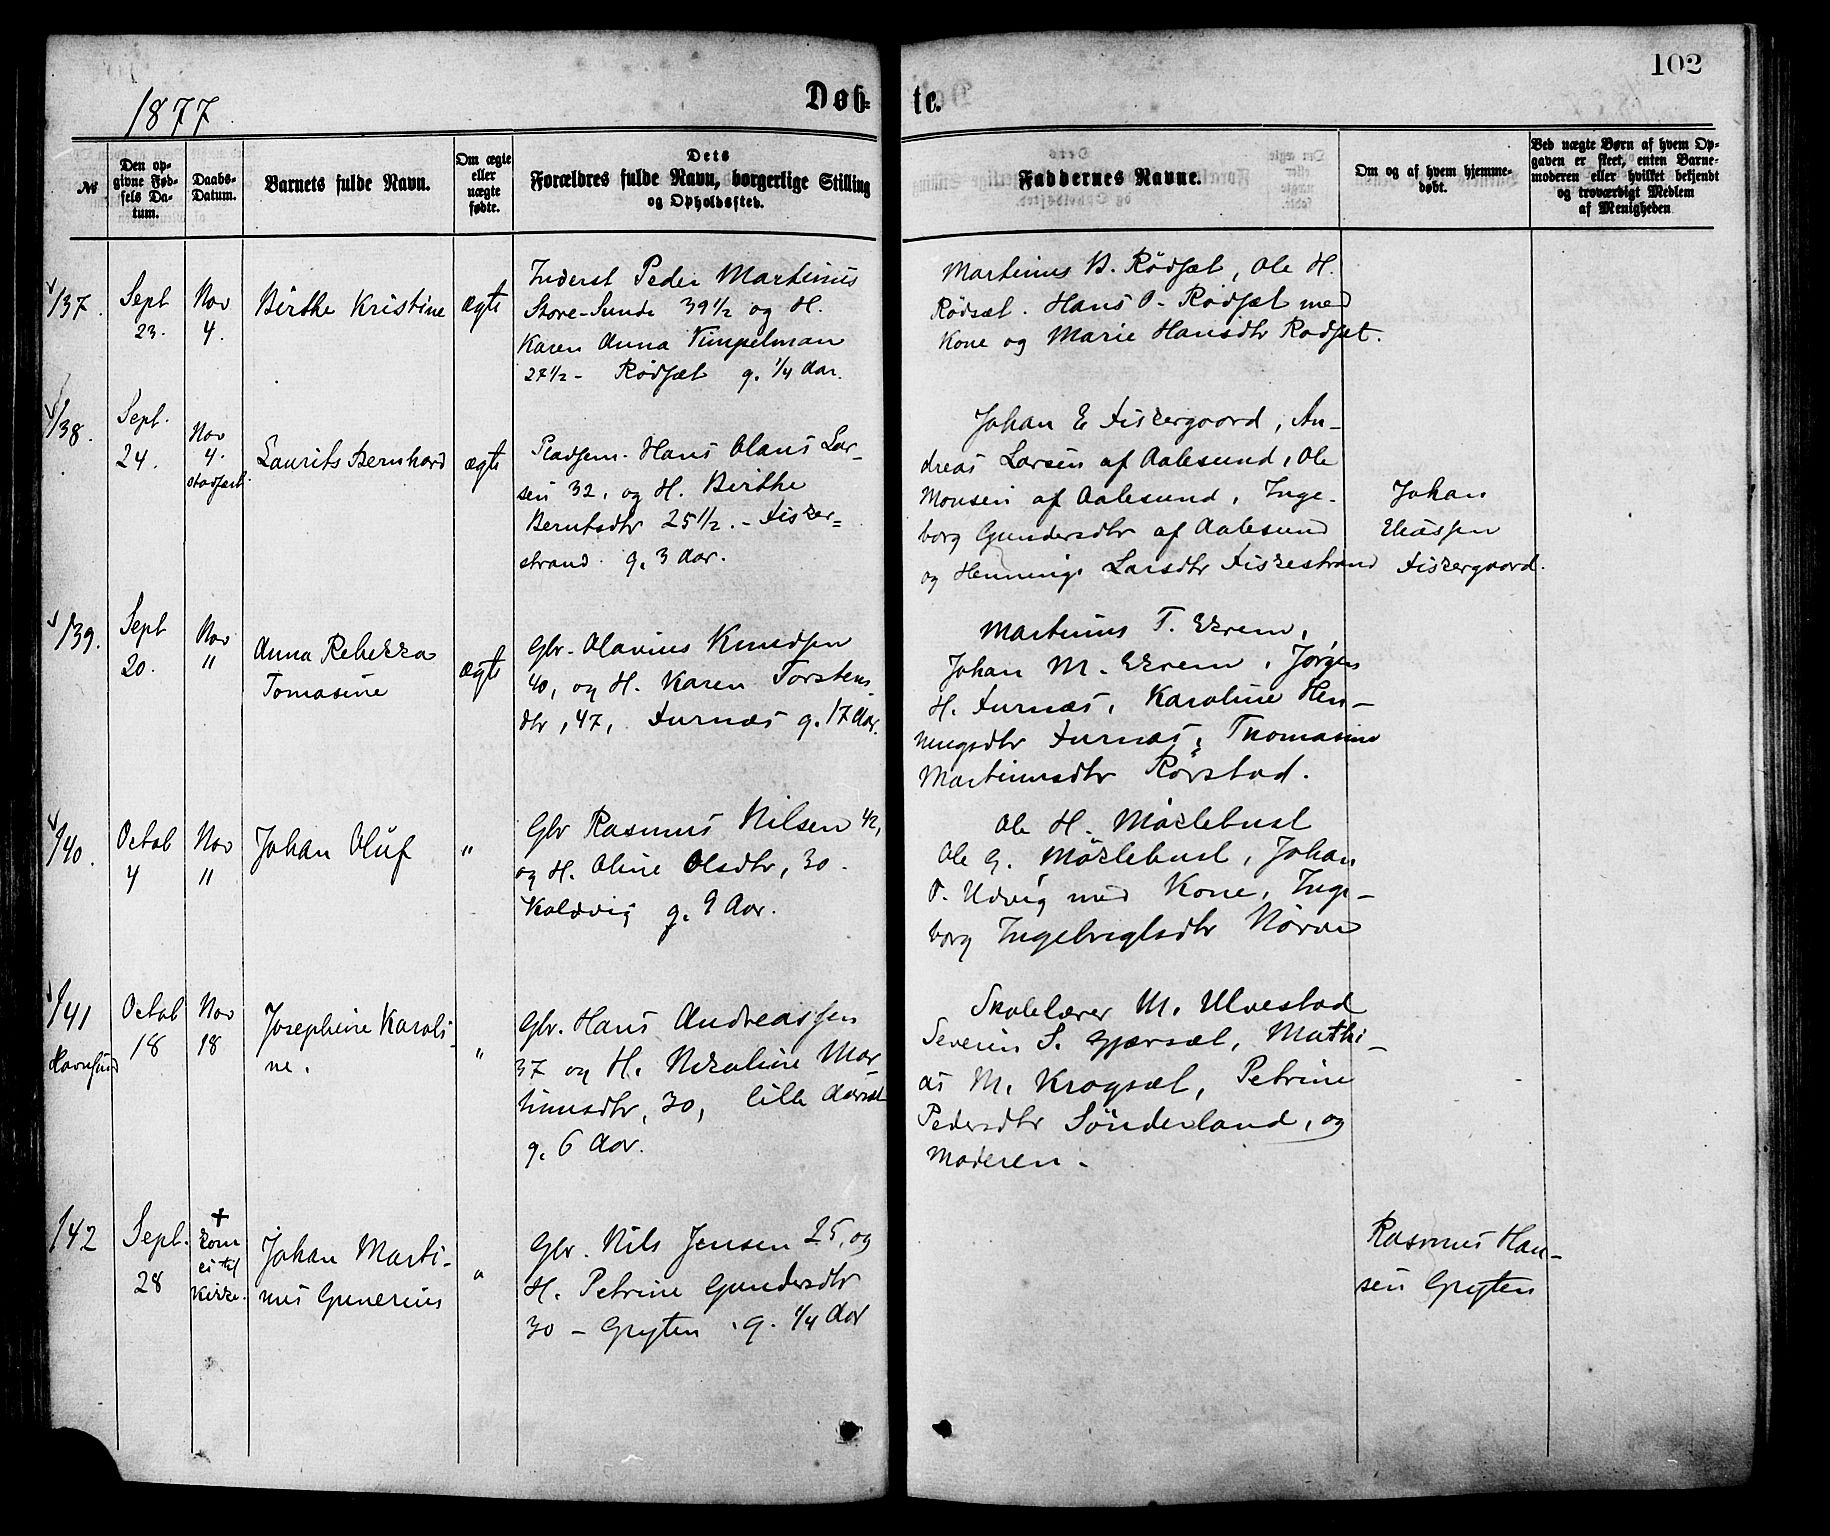 1877
Døb-
te.
102
№
Den op-
givne Fød-
sels Da-
tum.
Daabs-
Datum.
Barnets fulde Navn.
Om ægte
eller
uægte
fødte.
Dets
Forældres fulde Navn, borgerlige Stilling
og Opholdssted.
Faddernes Navne.
Om og af hvem hjemme-
døbt.
Ved uægte Børn af hvem Op-
gaven er skeet, enten Barne-
moderen eller hvilket bekjendt
og troværdigt Medlem
af Menigheden
137.
Sept
23.
Nov
4.
Birthe Kristine
ægte
Inderst Peder Martinus
Store-Sunde 39 1/2 og H.
Karen Anna Vimpelman
27 1/2 - Rødsæt g. 1/4 Aar.
Martinus B. Rødsæt, Ole H.
Rødsæt. Hans O. Rødsæt med
Kone og Marie Hansdtr Rødsæt.
138.
Sept.
24.
Nov
4.
stadfæst
Laurits Bernhard
ægte
Pladsem. Hans Olaus Lar-
sen 32, og H. Birthe
Berntsdtr 25 1/2. - Fisker-
strand. g. 3 Aar.
Johan E Fiskergaard, An-
dreas Larsen af Aalesund, Ole
Monsen af Aalesund, Inge-
borg Gundersdtr af Aalesund
og Henninge Larsdtr Fiskestrand
Johan
Eliassen
Fiskergaard.
139.
Sept
20.
Nov
11
Anna Rebekka
Tomasine
ægte
Gbr. Olavius Knudsen
40, og H. Karen Torstens
dtr, 47, Furnæs g. 17 Aar.
Martinus T. Ekrem,
Johan M. Ekrem, Jørgen
H. Furnæs, Karoline Hen-
ningsdtr Furnæs, Thomasine
Martinusdtr Rørstad.
140.
Octob
4
Nov
11
Johan Oluf
"
Gbr Rasmus Nilsen 42,
og H. Oline Olsdtr, 30.
Kaldvig g. 9 Aar.
Ole H. Møklebust
Ole G. Møklebust, Johan
P. Udvig med Kone, Inge-
borg Ingebrigtsdtr Nørve
141
Havnsund
Octob
18
Nov
18
Josephine Karoli-
ne.
"
Gbr. Hans Andreassen
37 og H. Nikoline Mar
tinusdtr, 30, lille Aarsæt
g. 6 Aar.
Skolelærer M. Ulvestad
Severin S. Gjærsæt, Mathi-
as M. Krogsæt, Petrine
Pedersdtr Sønderland, og
Moderen.
142
Sept.
28
+
kom
ei til
Kirke.
Johan Marti-
nus Gunerius
"
Gbr. Nils Jensen 25, og
H. Petrine Gundersdtr
30 - Grøten. g. 1/4 Aar
Rasmus Han-
sen Grøten